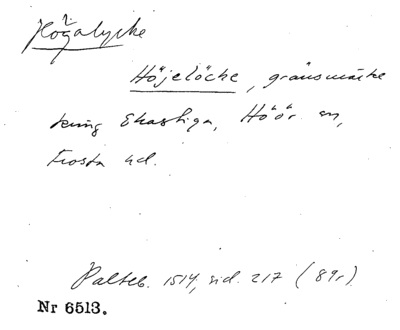 Högalycke
Höjelöcke, gränsmärke
kring Ekastiga, Höör sn,
Frosta hd.
Palteb. 1514, sid. 217 (89r)
Nr 6513.